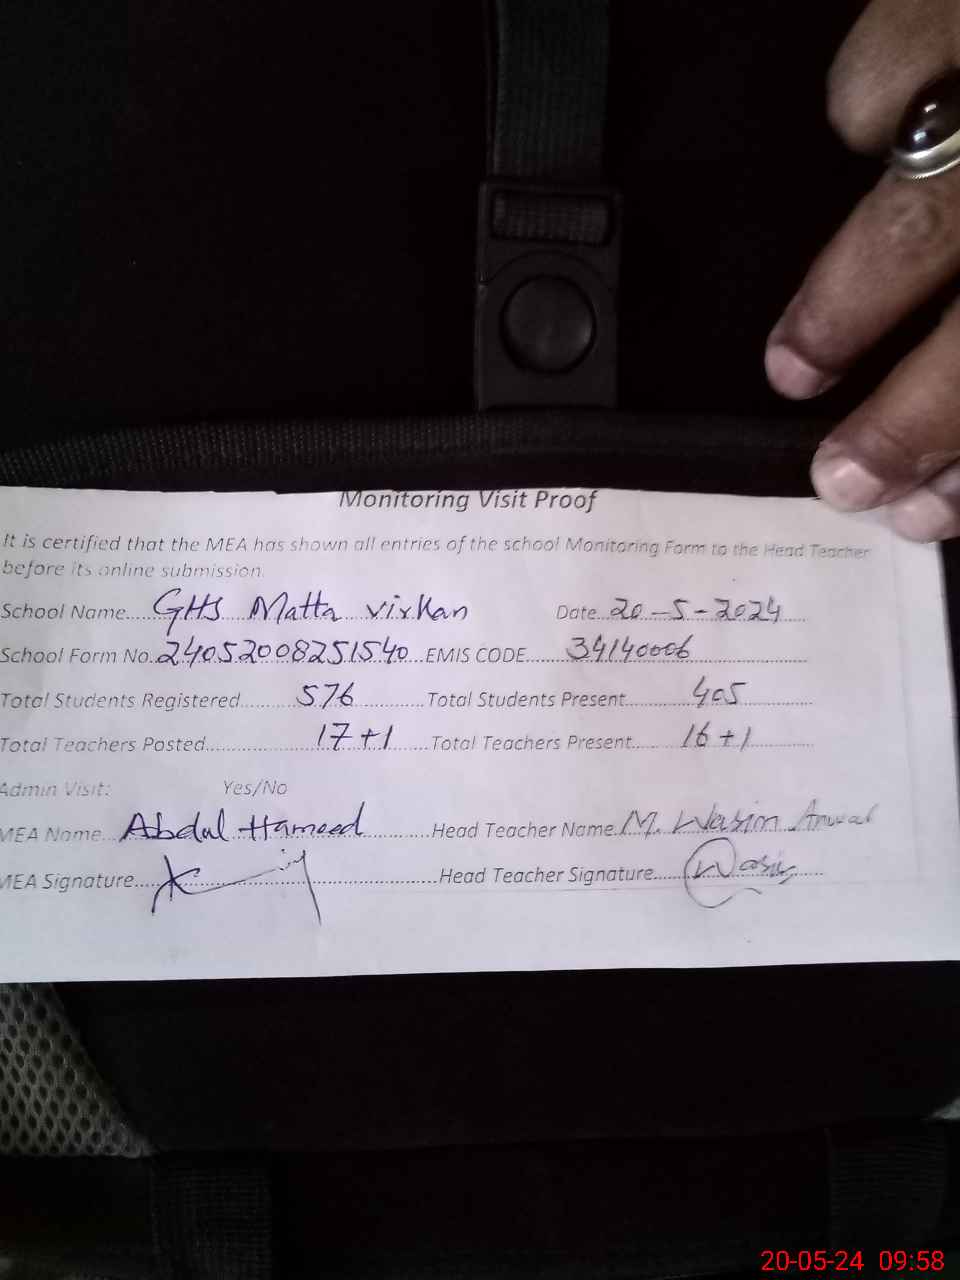 Monitoring Visit Proof
It is certified that the MEA has shown all entries of the school Monitoring Form to the Head Teacher
before its online submission.
School Name....GHS Matta Virkan Date...20-5-2024
School Form No..24052008251540...EMIS CODE.......34140006
Total Students Registered..........576 Total Students Present..........405
Total Teachers Posted..........17+1 Total Teachers Present......16+1
Admin Visit: Yes/No
MEA Name...Abdul Hameed Head Teacher Name.M. Wasim Anwar
MEA Signature.... Head Teacher Signature.....Wasim
20-05-24 09:58